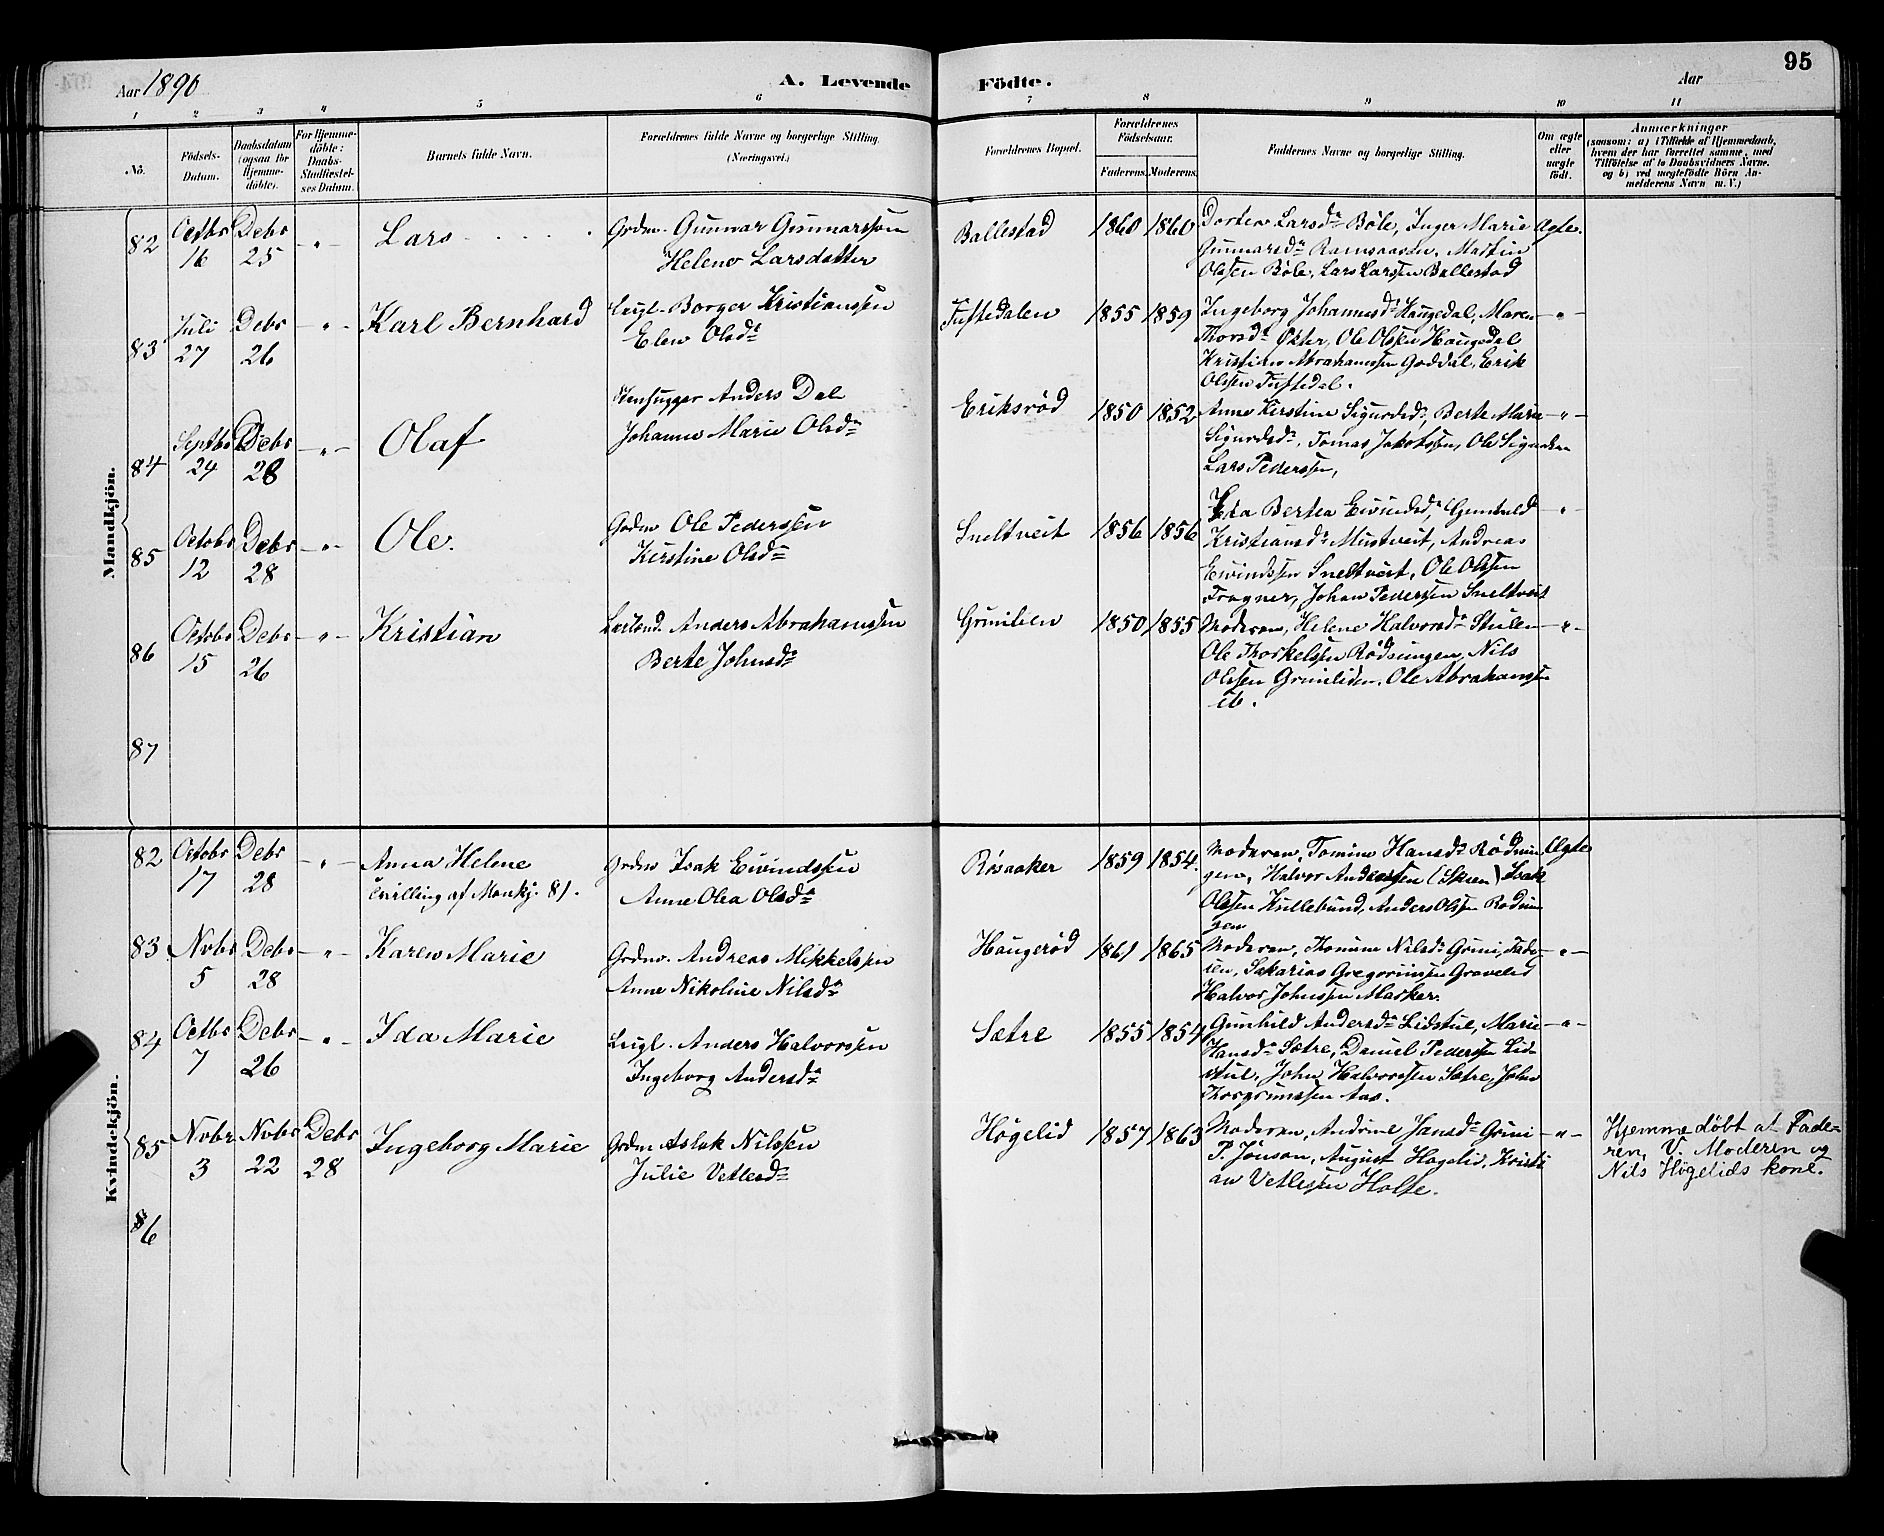 95
Aar 1890 A. Levende Födte. Aar
1 2 3 4 5 6 7 8 9 10 11
No.
Födsels-
Datum.
Daabsdatum
(ogsaa for
Hjemme-
döbte).
For Hjemme-
döbte:
Daabs-
Stadfæstel-
ses Datum.
Barnets fulde Navn.
Forældrenes fulde Navne og borgerlige Stilling.
(Næringsvei.)
Forældrenes Bopæl.
Forældrenes
Födselsaar.
Faderens. Moderens.
Faddernes Navne og borgerlige Stilling.
Om ægte
eller
uægte
födt.
Anmærkninger
(saasom: a) i Tilfælde af Hjemmedaab,
hvem der har forrettet samme, med
Tilföielse af to Daabsvidners Navne.
og b) ved uægtefödte Börn An-
melderens Navn m. V.)
Mandkjön.
82 Octbr 16 Debr 25 -„- Lars
Grdm. Gunnar Gunnarssøn
Helene Larsdatter
Ballestad 1860 1860
Dorthea Larsdr Bøle, Inger Marie
Gunnarsdr Ramsaasen, Martin
Olssen Bøle, Lars Larssen Ballestad
Ægte.
83 Juli 27 Debr 26 -„- Karl Bernhard
Leigl. Borger Kristianssen
Elen Olsdr
Tuftedalen 1855 1859
Ingeborg Johannesdr Haugedal, Maren
Thorsdr Øster, Ole Olssen Haugedal
Kristian Abrahamssen Goddal, Erik
Olssen Tuftedal.
-„-
84 Septbr 24 Debr 28 -„- Olaf
Stenhugger Anders Dal
Johanne Marie Olsdr
Eriksrød 1850 1852
Anne Kirstine Sigurdsdr, Berte Marie
Sigurdsdr, Tomas Jakobssen, Ole Sigurdsen
Lars Pederssen,
-„-
85 Octobr 12 Debr 28 -„- Ole.
Grdm Ole Pederssen
Kirstine Olsdr
Sneltveit 1856 1856
Berthea Eivindsdr, Gunhild
Kristiansdr Mustveit, Andreas
Eivindssen Sneltveit, Ole Olssen
Fragner, Johan Pederssen Sneltveit
-„-
86 Octobr 15 Debr 26 -„- Kristian
Anders Abrahamssen
Berte Johnsdr
Grinilien 1850 1855
Moderen, Helene Halvorsdr Stulen
Ole Thorkelssen Rødsungen, Nils
Olssen Grinilien. Ole Abrahamssen
ib.
-„-
87
Kvindekjön.
82 Octobr 17 Debr 28 -„- Anna Helene
Tvilling af Mankj. 81.
Grdm Isak Eivindssen
Anne Olea Olsdr
Røsaaker 1859 1854.
Moderen, Tomine Hansdr Rødsun
gen, Halvor Anderssen (Skien) Isak
Olssen Kullebund, Anders Olssen Rødsun
gen
Ægte
83 Nvbr 5 Debr 28 -„- Karen Marie
Grdm. Andreas Mikkelssen
Anne Nikoline Nilsdr
Haugerød 1861 1865
Moderen, Thomine Nilsdr Grini, Fade-
ren, Sakarias Gregoriussen Gravelid
Halvor Johnssen Marker.
-„-
84 Octbr 7 Debr 26 -„- Ida Marie
Leigl. Anders Halvorssen
Ingeborg Andersdr
Sætre 1855 1854
Gunhild Andersdr Lidstul, Marie
Hansdr Sætre, Daniel Pederssen Lid-
stul, John Halvorssen Sætre, John
Thorgrimssen Aas.
-„-
85 Nvbr 3 Nvbr 22 Debr 28 Ingeborg Marie
Grdm Aslak Nilssen
Julie Vetlesdr
Høgelid 1857 1863
Moderen, Andrine Jansdr Grini
P. Jonson, August Høgelid, Kristi
an Vetlessen Holte.
-„-
Hjemmedøbt af Fade-
ren, V. Moderen og
Nils Høgelids kone.
86